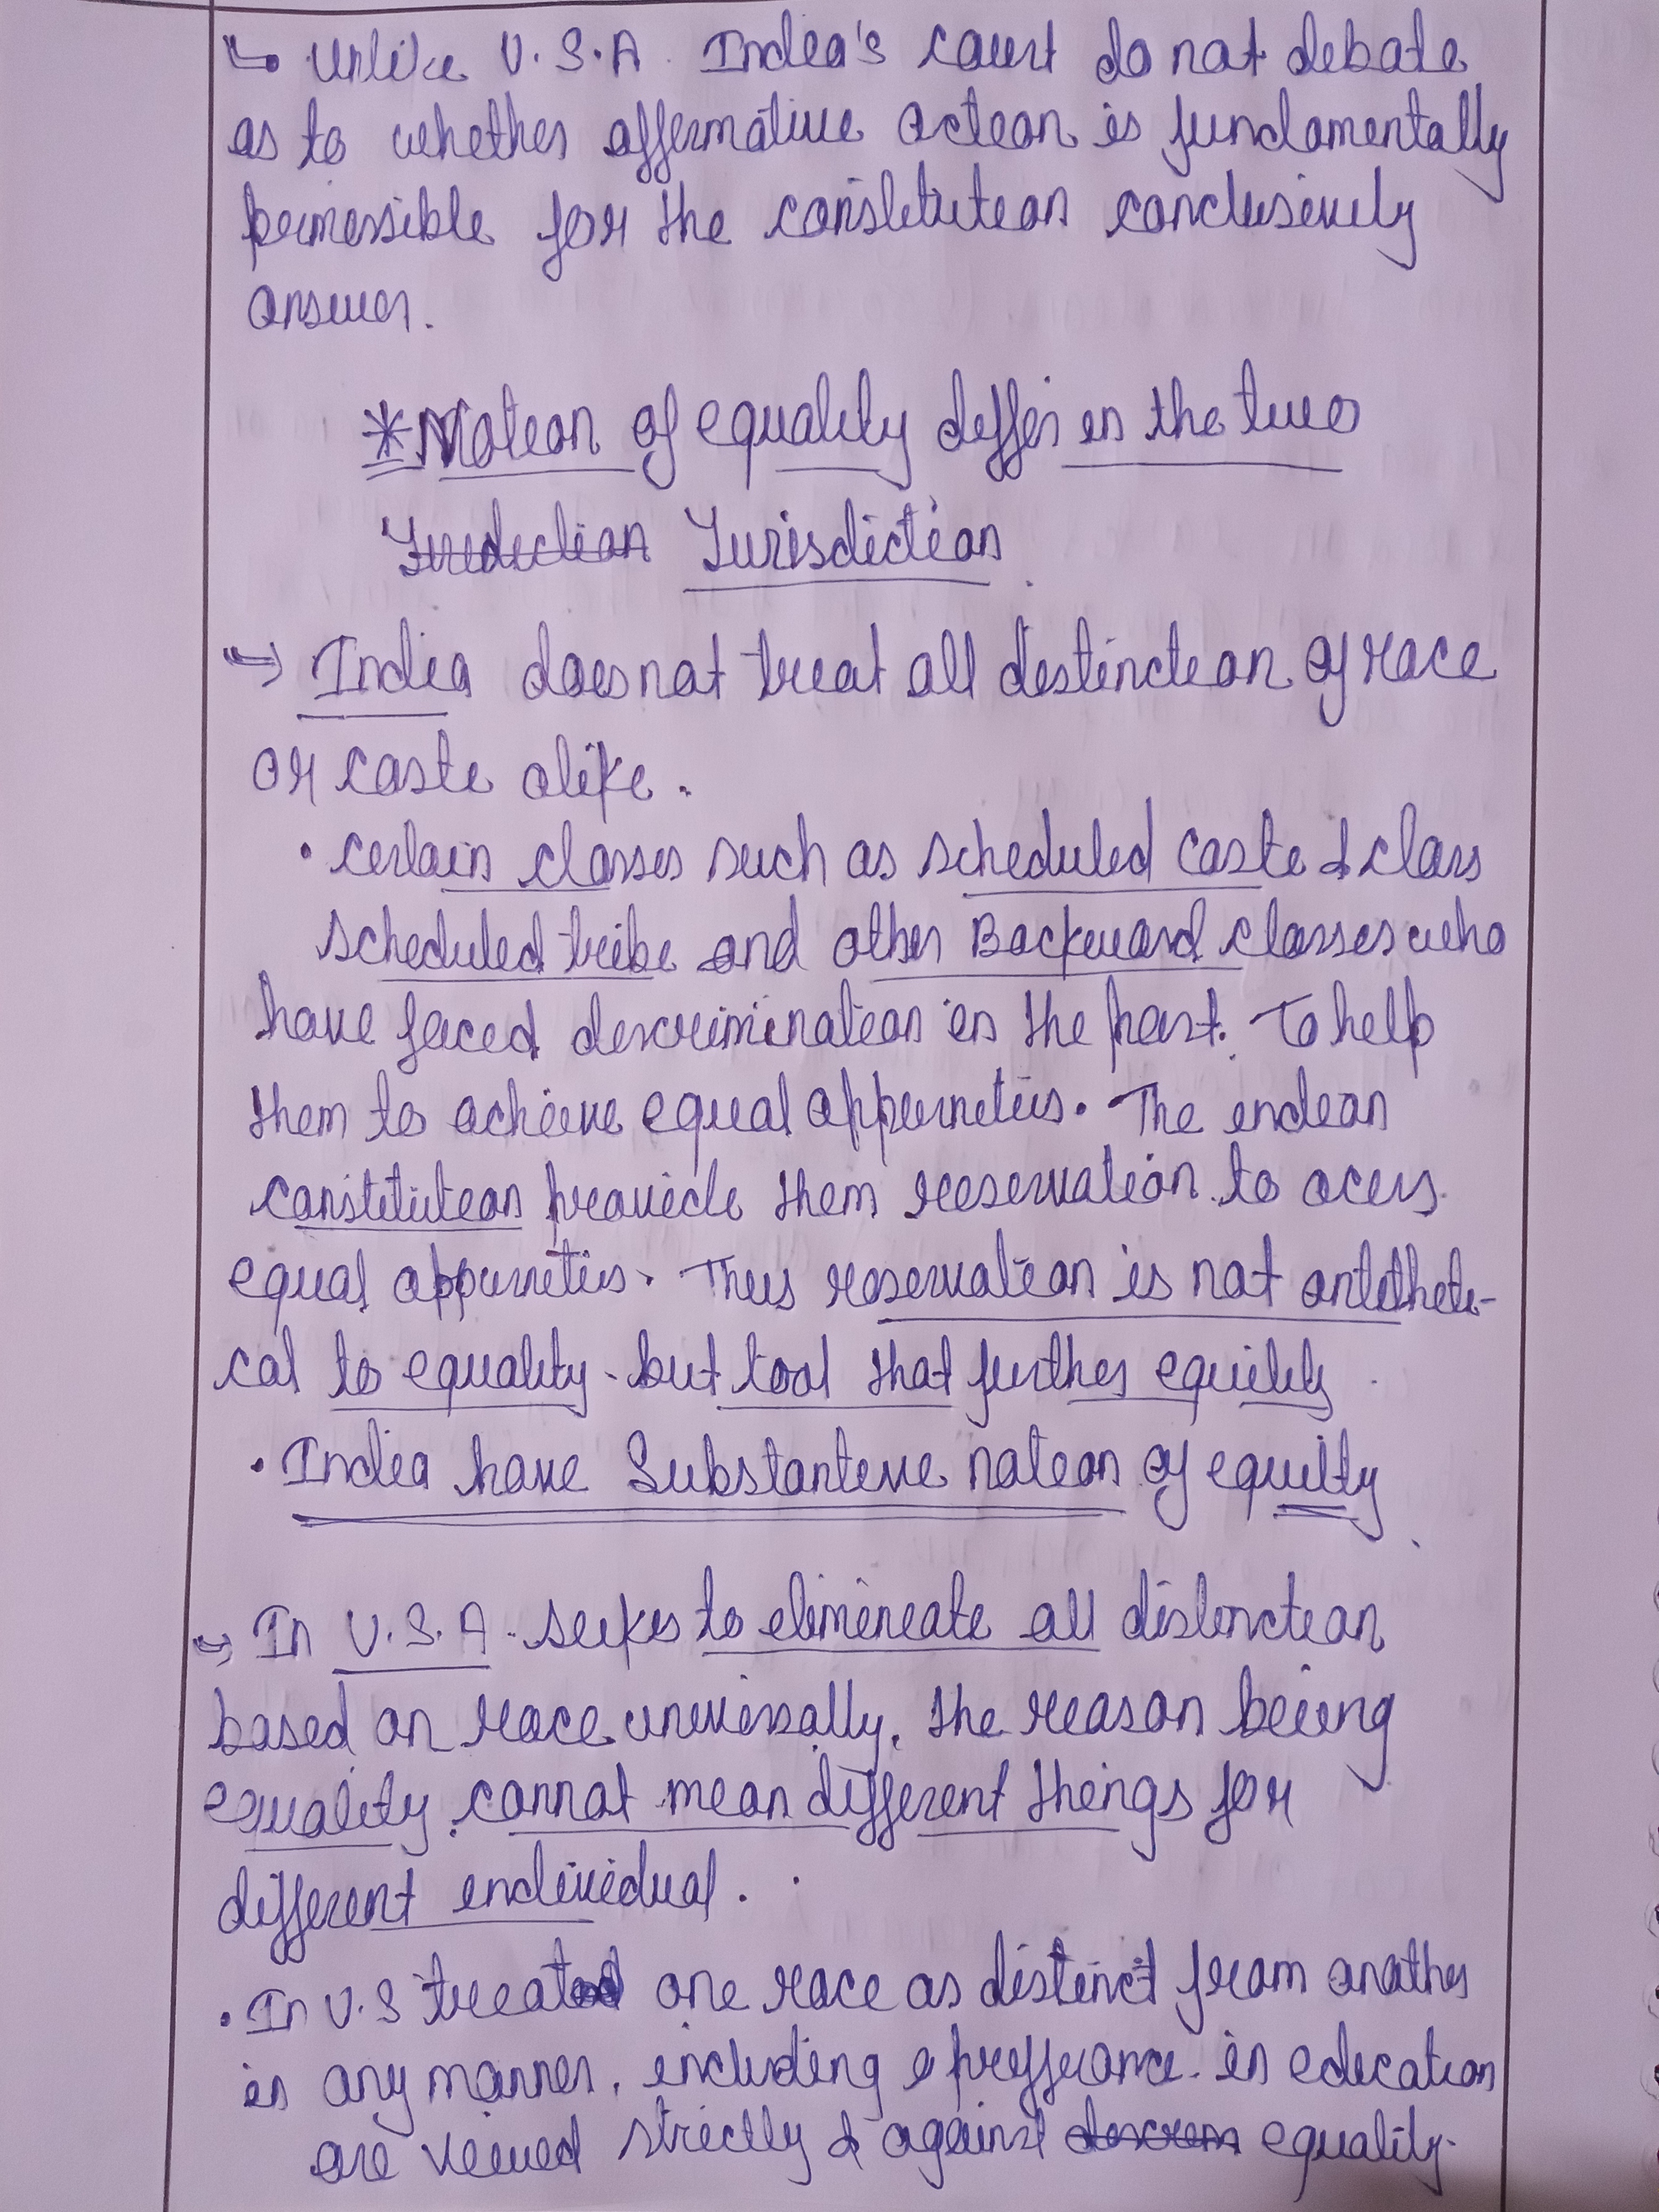 ↳ Unlike U.S.A. India's court do not debate
as to whether affirmative action is fundamentally
permissible for the constitution conclusively
answer.
*Notion of equality differ in the two
Juridiction Jurisdiction
→ India does not treat all distinction of race
or caste alike.
• certain classes such as scheduled caste & class
scheduled tribe and other Backward classes who
have faced descrimination in the past. To help
them to achieve equal oppurneties. The indian
constitution provide them reservation to acess
equal oppurneties. Thus reservation is not antitheti-
cal to equality but tool that further equility
• India have Substantive notion of equilty
→ In U.S.A. seekes to elimineate all distinction
based on race universally. the reason being
equality cannot mean different things for
different individual.
• In U.S treated one race as distinct from another
in any manner, including a prefferance in education
are viewed strictly & against descrem equality.